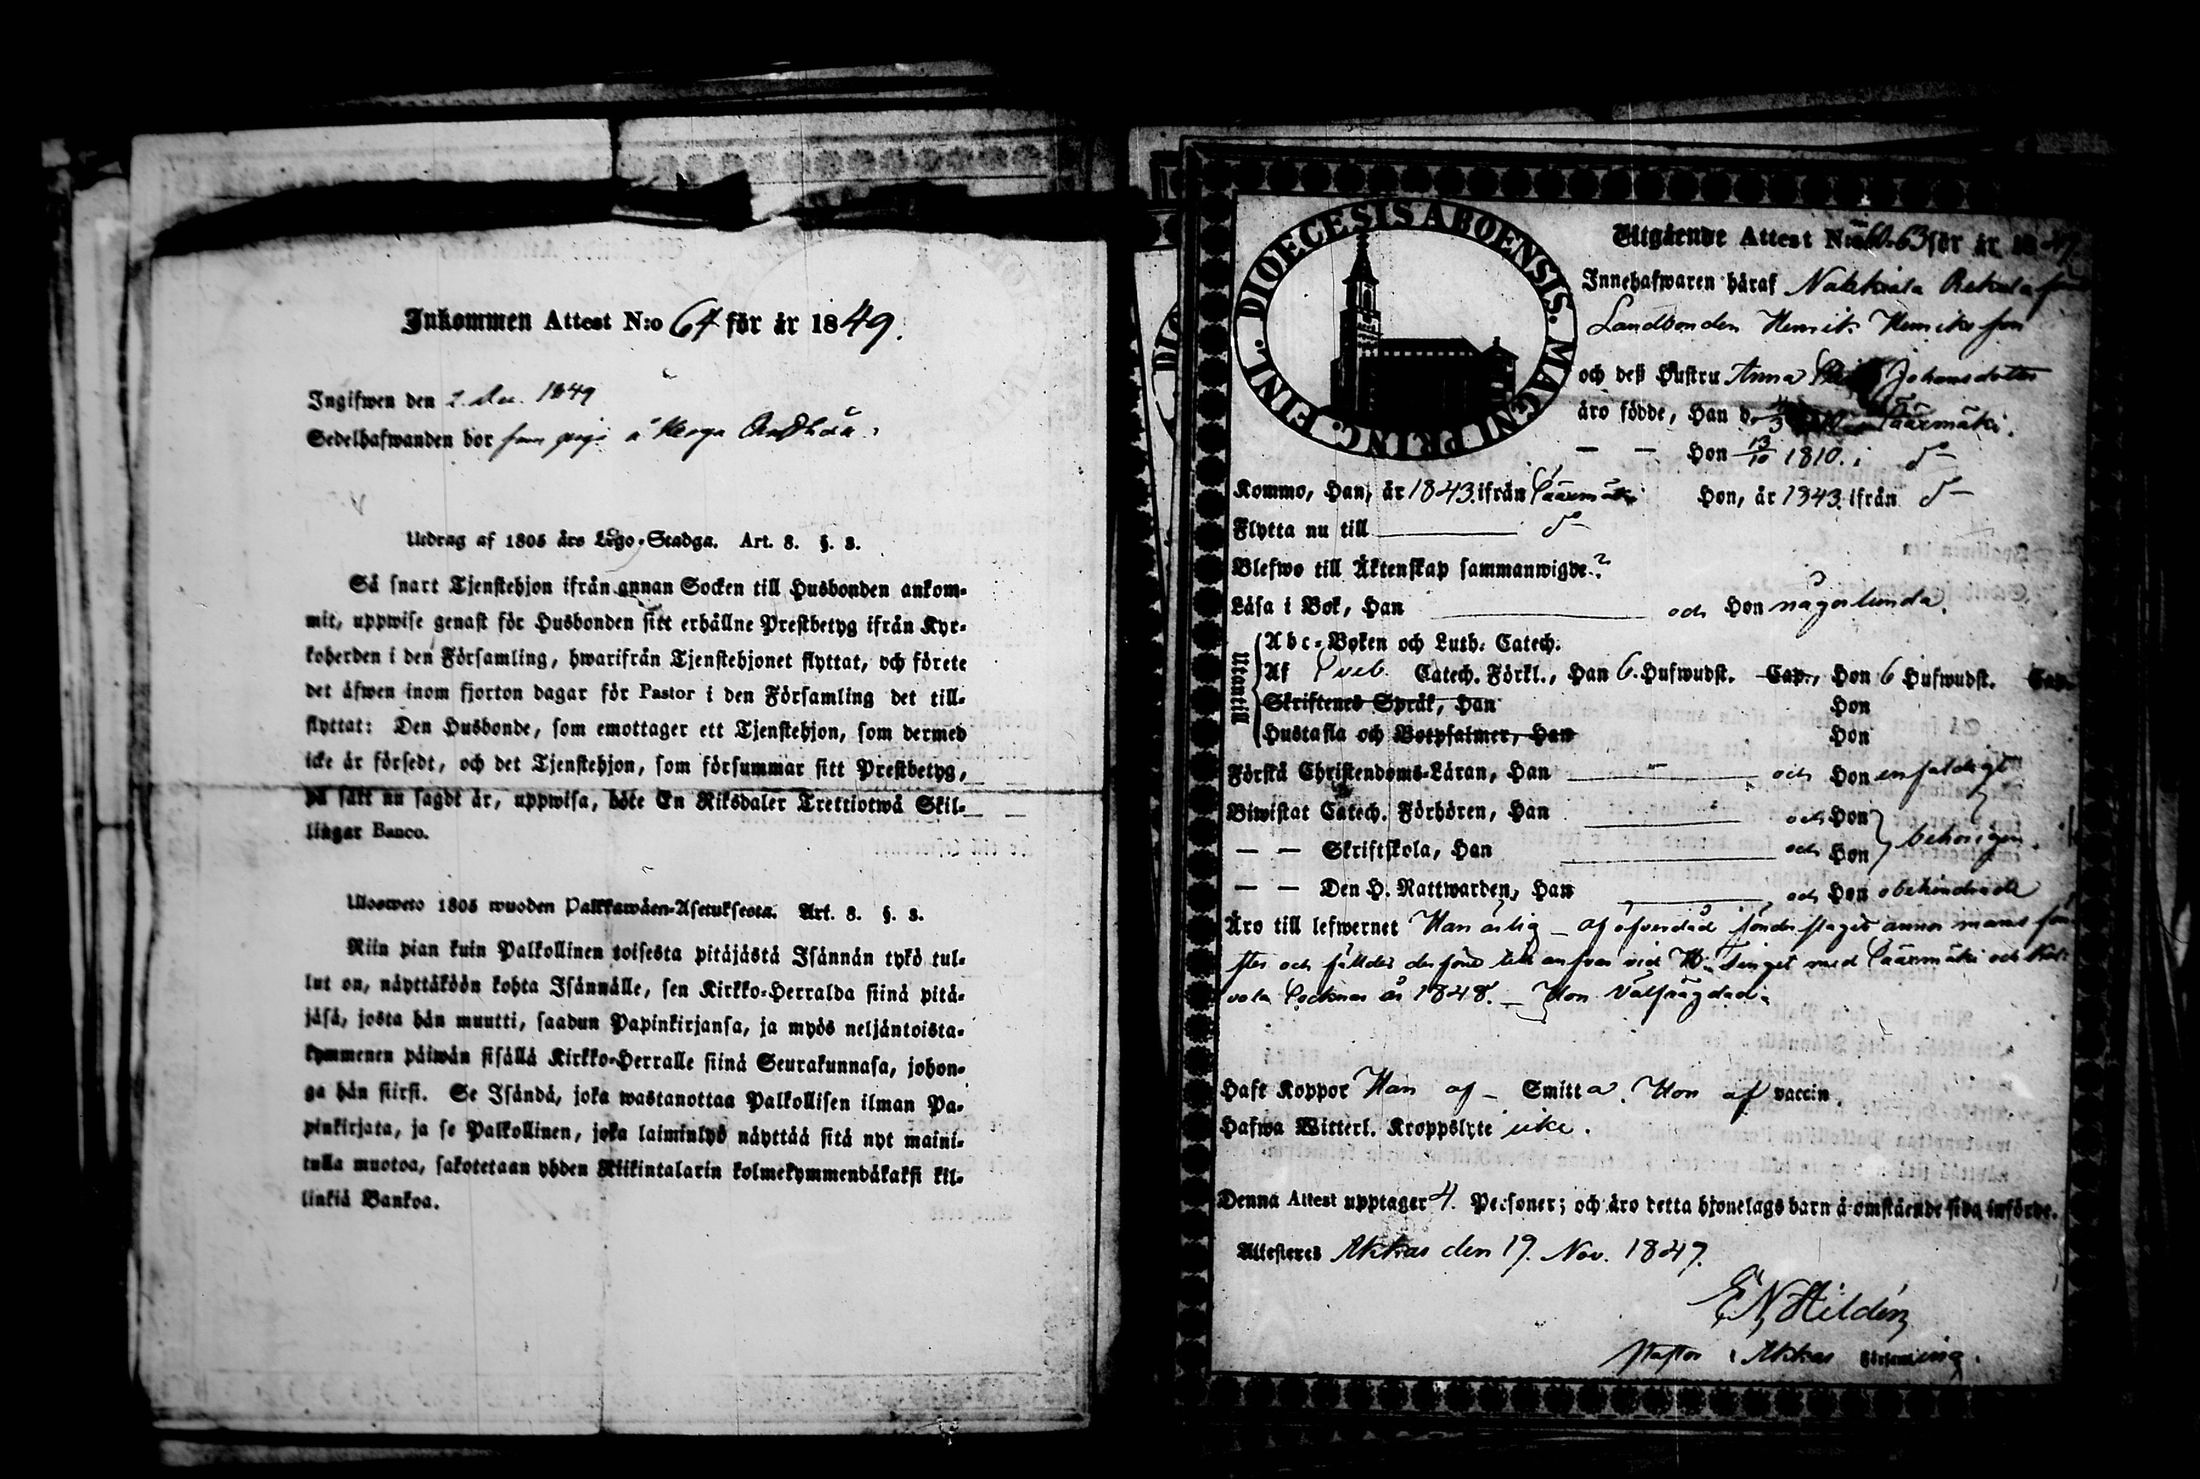 Inkommen Attest N:o 64 för år 1849.
Ingifwen den 2. Dec. 1849
Sedelhafwanden bor som piga å
Utdrag af 1805 års Lego-Stadga. Art. 8. §. 3.
Så snart Tjenstehjon ifrån annan Socken till Husbonden ankom-
mit, uppwise genast för Husbonden sitt erhållne Prestbetyg ifrån Kyr-
koherden i den Församling, hwarifrån Tjenstehjonet flyttat, och förete
det äfwen inom fjorton dagar för Pastor i den Församling det till-
flyttat: Den Husbonde, som emottager ett Tjenstehjon, som dermed
icke är försedt, och det Tjenstehjon, som försummar sitt Prestbetyg,
på sätt nu sagdt är, uppwisa, böte En Riksdaler Trettiotwå Skil-
lingar Banco.
Ulosweto 1805 wuoden Palkkawäen-Asetuksesta. Art. 8. §. 3.
Niin pian kuin Palkollinen toisesta pitäjästä Isännän tykö tul-
lut on, näyttäköön kohta Isännälle, sen Kirkko-Herralda siinä pitä-
jäsä, josta hän muutti, saadun Papinkirjansa, ja myös neljäntoista-
kymmenen päiwän sisällä Kirkko-Herralle siinä Seurakunnasa, johon-
ga hän siirsi. Se Isändä, joka wastanottaa Palkollisen ilman Pa-
pinkirjata, ja se Palkollinen, joka laiminlyö näyttää sitä nyt maini-
tulla muotoa, sakotetaan yhden Riikintalarin kolmekymmendäkaksi kil-
linkiä Bankoa.
DIOECESIS ABOENSIS. MAGNI PRINC. FINL.
Utgående Attest N:o 63 för år 1849
Innehafwaren häraf
Landbonden Henrik Henriksson
och deß Hustru Anna Johansdotter
äro födde, Han d. Sääxmäki.
— — Hon 13/10 1810. i d:o
Kommo, Han, år 1843. ifrån Sääxmäki Hon, år 1843. ifrån d:o
Flytta nu till d:o
Blefwo till Äktenskap sammanwigde ?
Läsa i Bok, Han och Hon någorlunda.
Utantill
Abc-Boken och Luth. Catech.
Af Sveb. Catech. Förkl., Han 6. Hufwudst. Cap., Hon 6 Hufwudst. Cap.
Skriftenes Språk, Han Hon
Hustafla och Botpsalmer, Han Hon
Förstå Christendoms-Läran, Han och Hon enfaldigt
Biwistat Catech. Förhören, Han och Hon
— — Skriftskola, Han och Hon behörigen.
— — Den H. Nattwarden, Han och Hon obehindrade
Äro till lefwernet Han ärlig — af öfverdåd sönderslaget annor mans fön-
ster och fälldes derföre till ansvar vid H. Tinget med Sääxmäki och Kal-
vola Socknar år 1848. — Hon Välfrägdad.
Haft Koppor Han af — Smitta. Hon af vaccin.
Hafwa Witterl. Kroppslyte icke.
Denna Attest upptager 4. Personer; och äro detta hjonelags barn å omstående sida införde.
Attesteres Akkas den 19. Nov. 1849.
E N Hildén
Pastor i Akkas Församling.